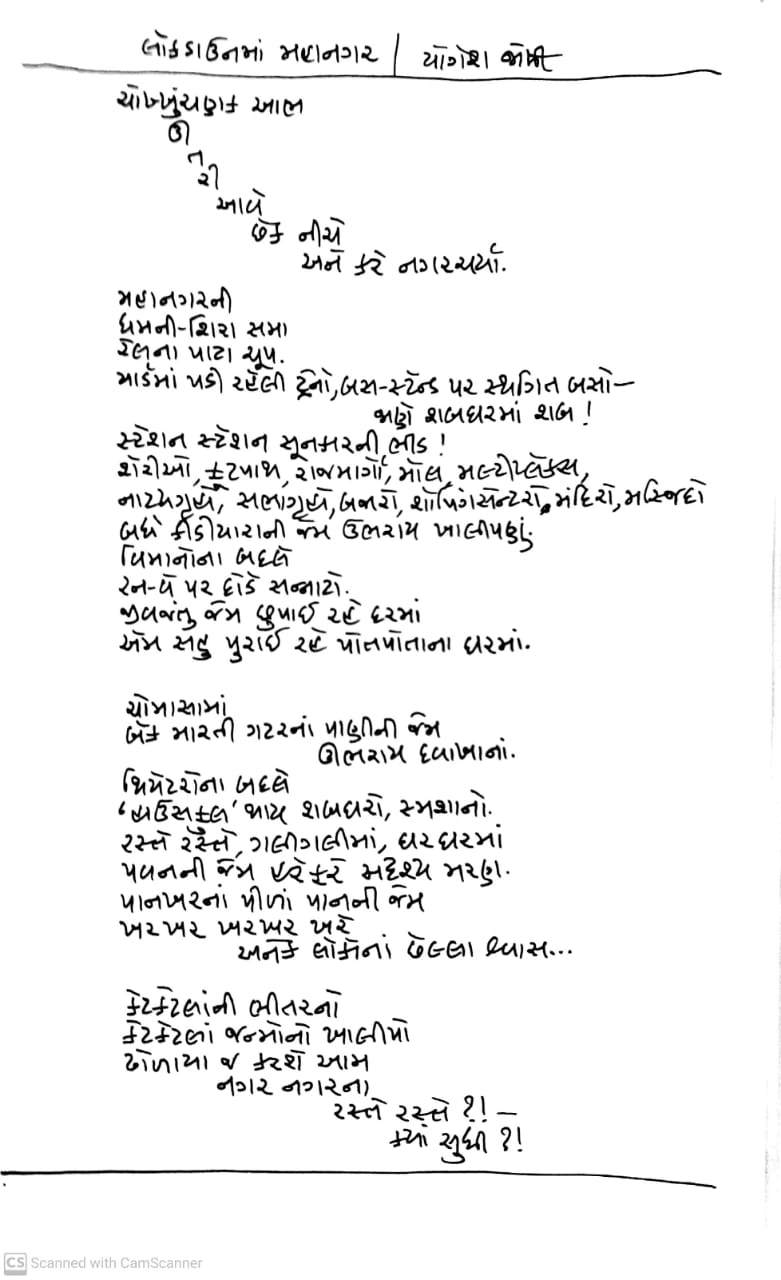 લોકડાઉનમાં મહાનગર | યોગેશ જોષી
ચોખ્ખુંચણાક આભ
ઊ
ત
રી
આવે
છેક નીચે
અને કરે નગરચર્યા.
મહાનગરની
ધમની-શિરા સમા
રેલના પાટા ચૂપ.
યાર્ડમાં પડી રહેલી ટ્રેનો, બસ-સ્ટેન્ડ પર સ્થગિત બસો—
જાણે શબઘરમાં શબ !
સ્ટેશન સ્ટેશન સૂનકારની ભીડ !
શેરીઓ, ફૂટપાથ, રાજમાર્ગો, મૉલ, મલ્ટીપ્લેક્સ,
નાટ્યગૃહો, સભાગૃહો, બજારો, શોપિંગસેન્ટરો, મંદિરો, મસ્જિદો
બધે કીડીયારાની જેમ ઉભરાય ખાલીપણું.
વિમાનોના બદલે
રન-વે પર દોડે સન્નાટો.
જીવજંતુ જેમ છુપાઈ રહે દરમાં
એમ સહુ પુરાઈ રહે પોતપોતાના ઘરમાં.
ચોમાસામાં
બેક મારતી ગટરનાં પાણીની જેમ
ઊભરાય દવાખાનાં.
થિયેટરોના બદલે
‘હાઉસફુલ’ થાય શબઘરો, સ્મશાનો.
રસ્તે રસ્તે, ગલીગલીમાં, ઘરઘરમાં
પવનની જેમ હરેફરે અદૃશ્ય મરણ.
પાનખરનાં પીળાં પાનની જેમ
ખરખર ખરખર ખરે
અનેક લોકોનાં છેલ્લા શ્વાસ...
કેટકેટલાંની ભીતરનો
કેટકેટલાં જન્મોનો ખાલીપો
ઢોળાયા જ કરશે આમ
નગર નગરના
રસ્તે રસ્તે ?! —
ક્યાં સુધી ?!
CS Scanned with CamScanner